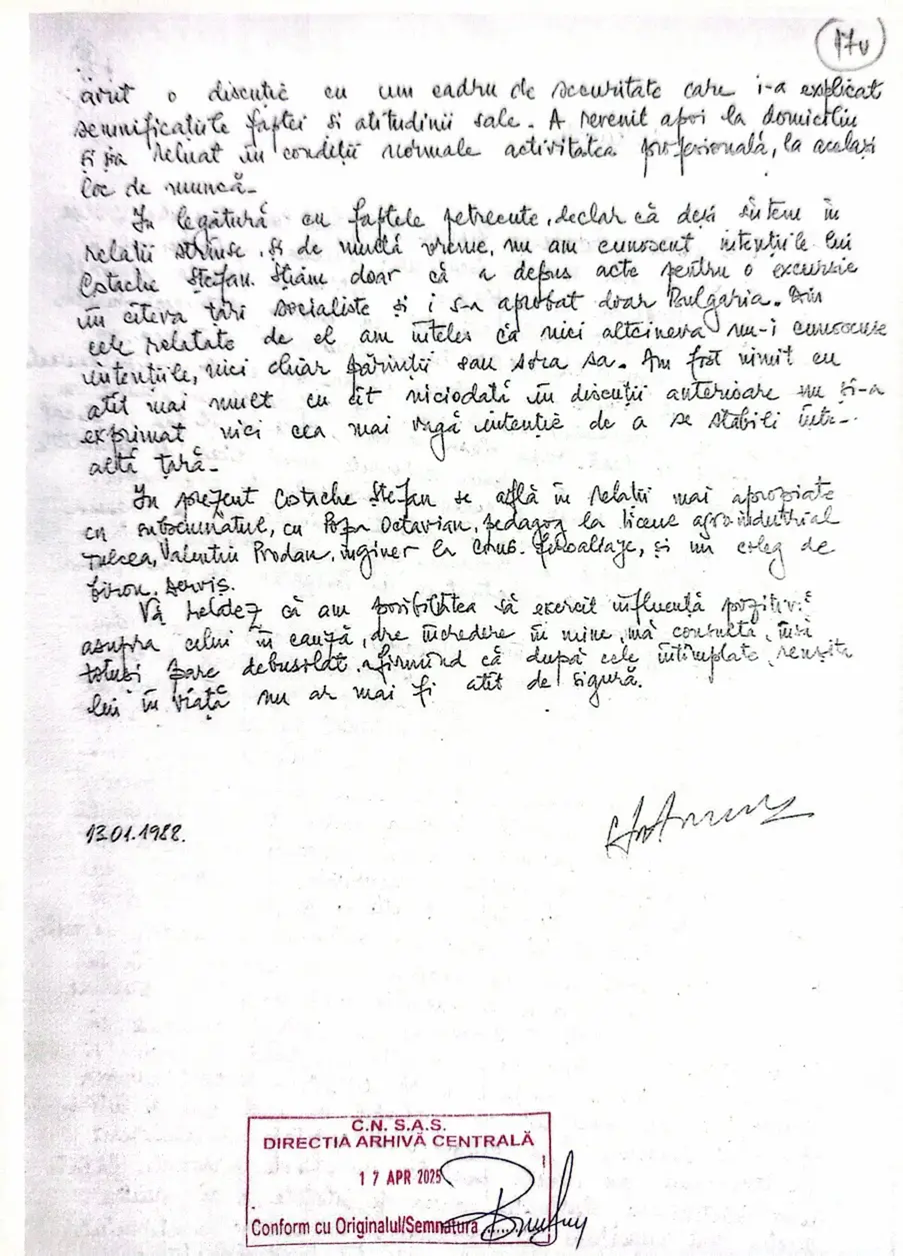 17v
avut o discuție cu un cadru de securitate care i-a explicat
semnificațiile faptei și atitudinii sale. A revenit apoi la domiciliu
și și-a reluat în condiții normale activitatea profesională, la același
loc de muncă.
În legătură cu faptele petrecute, declar că deși sîntem în
relații strînse, și de multă vreme, nu am cunoscut intențiile lui
Costache Ștefan. Știam doar că a depus acte pentru o excursie
în cîteva țări socialiste și i s-a aprobat doar Bulgaria. Din
cele relatate de el am înțeles că nici altcineva nu-i cunoscuse
intențiile, nici chiar părinții sau sora sa. Am fost uimit cu
atît mai mult cu cît niciodată în discuții anterioare nu și-a
exprimat nici cea mai vagă intenție de a se stabili într-
altă țară.
În prezent Costache Ștefan se află în relații mai apropiate
cu subsemnatul, cu Popa Octavian, pedagog la liceul agroindustrial
Tulcea, Valentin Prodan, inginer la și un coleg de
birou, serviș.
Vă relatez că am posibilitatea să exercit influență pozitivă
asupra celui în cauză, are încredere în mine, mă consultă, însă
totuși pare debusolat, afirmînd că după cele întîmplate, reușita
lui în viață nu ar mai fi atît de sigură.
13.01.1988.
C.N.S.A.S.
DIRECTIA ARHIVĂ CENTRALĂ
17 APR 2025
Conform cu Originalul/Semnatura